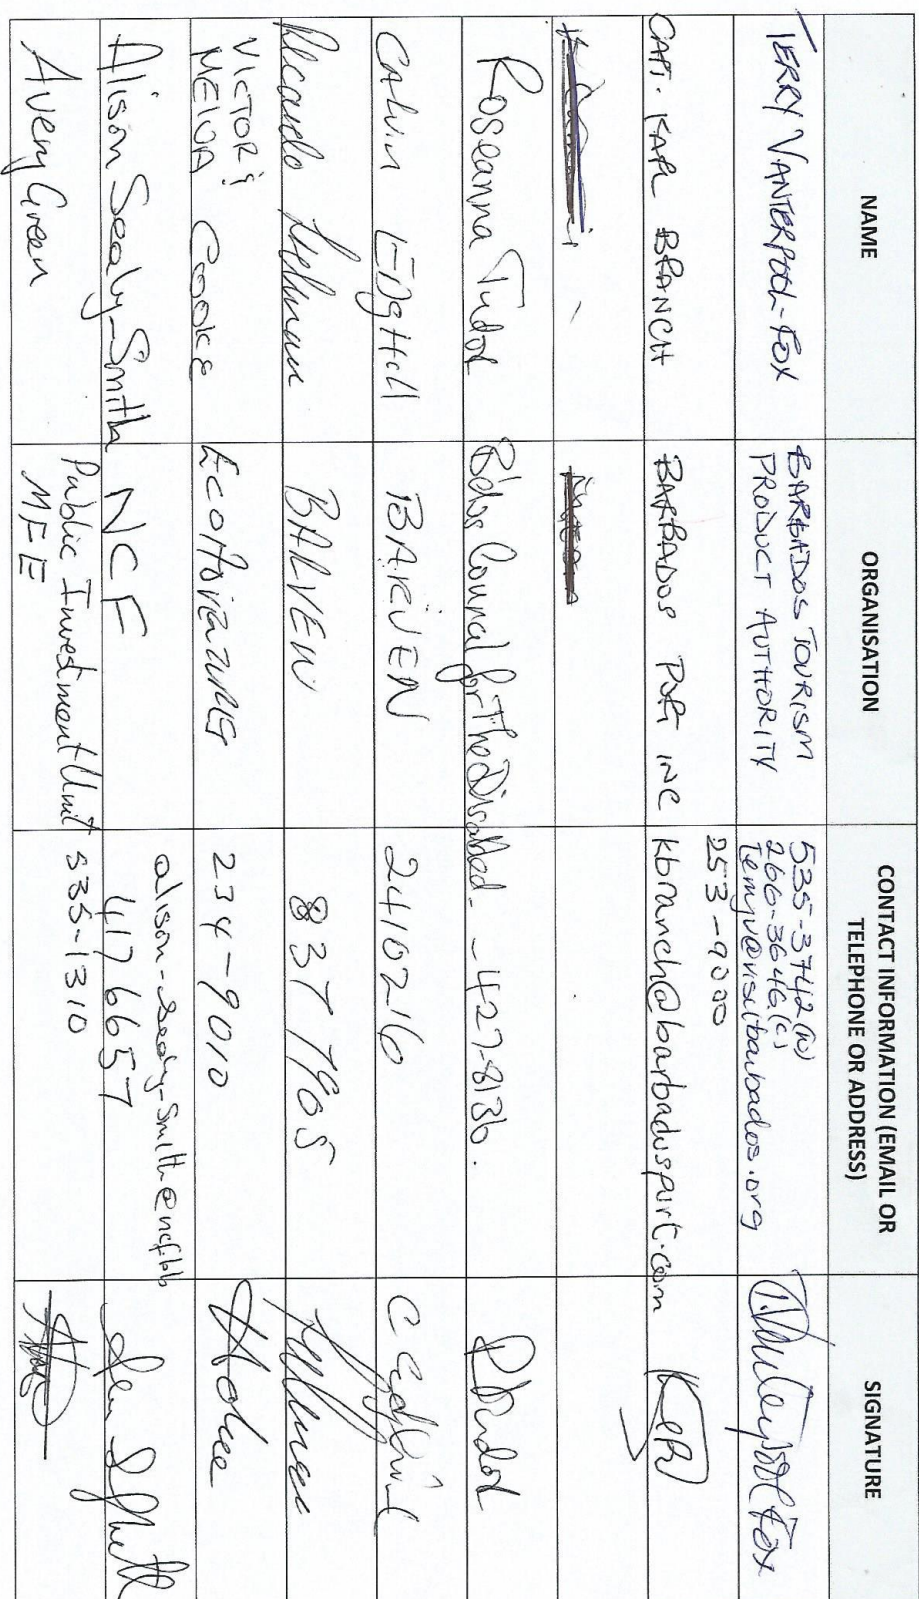 NAME
ORGANISATION
CONTACT INFORMATION (EMAIL OR
TELEPHONE OR ADDRESS)
SIGNATURE
TERRY VANTERPOOL-FOX
BARBADOS TOURISM
PRODUCT AUTHORITY
535-3742 (w)
266-3646 (c)
terryv@visitbarbados.org
T. Vanterpool Fox
CAPT. KARL BRANCH
BARBADOS PORT INC
253-9000
kbranch@barbadosport.com
Roseanna Tudor
B'dos Council for The Disabled
427-8136.
RTudor
CALVIN EDGHILL
BARJEN
2410216
C Edghill
Ricardo
BALVEN
837 7905
VICTOR &
MELVA COOKE
ECOTOVATURES
234-9010
Alison Sealy-Smith
NCF
alison-sealy-smith@ncf.bb
417 6657
Avery Green
Public Investment Unit
MFE
535-1310